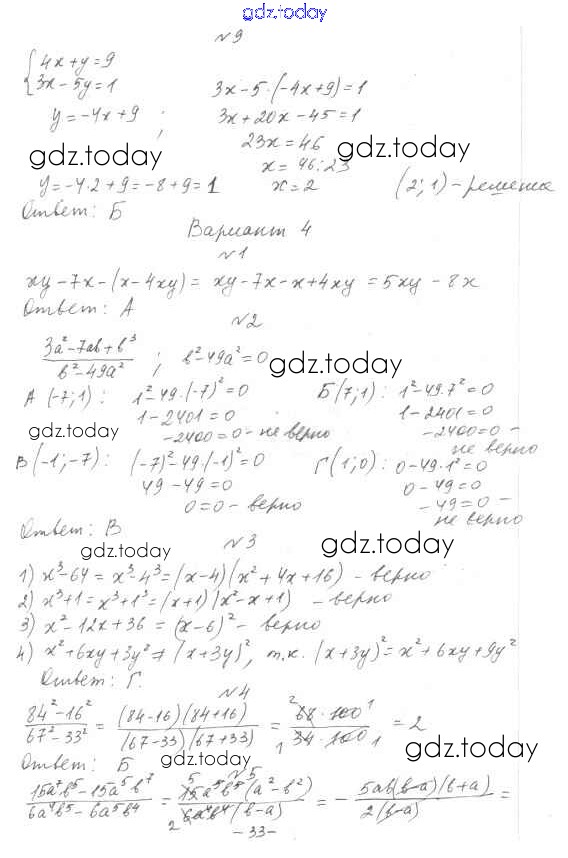 gdz.today
№9
{4x+y=9
3x-5y=1
3x-5·(-4x+9)=1
y=-4x+9 ;
3x+20x-45=1
23x=46
gdz.today
gdz.today
x=46:23
y=-4·2+9=-8+9=1
x=2
(2;1)-решение
Ответ: Б
Вариант 4
№1
xy-7x-(x-4xy)= xy-7x-x+4xy =5xy-8x
Ответ: А
№2
(3a²-7ab+b³)/(b²-49a²) ; b²-49a²=0
gdz.today
А (-7;1): 1²-49·(-7)²=0
Б(7;1): 1²-49·7²=0
1-2401=0
1-2401=0
gdz.today
-2400=0-не верно
-2400=0-
не верно
В(-1;-7): (-7)²-49·(-1)²=0
Г(1;0): 0-49·1²=0
49-49=0
0-49=0
0=0-верно
-49=0-
не верно
Ответ: В
№3
gdz.today
gdz.today
1) x³-64=x³-4³=(x-4)(x²+4x+16) - верно
2) x³+1=x³+1³=(x+1)(x²-x+1) - верно
3) x²-12x+36=(x-6)²- верно
4) x²+6xy+3y²≠(x+3y)², т.к. (x+3y)²=x²+6xy+9y²
Ответ: Г.
№4
(84²-16²)/(67²-33²) = (84-16)(84+16)/(67-33)(67+33) = 68·100/34·100 = 2
gdz.today
Ответ: Б
gdz.today
№5
(15a⁷b⁵-15a⁵b⁷)/(6a⁴b⁵-6a⁵b⁴) = 15a⁵b⁵(a²-b²)/6a⁴b⁴(b-a) = -5ab(b-a)(b+a)/2(b-a) =
-33-